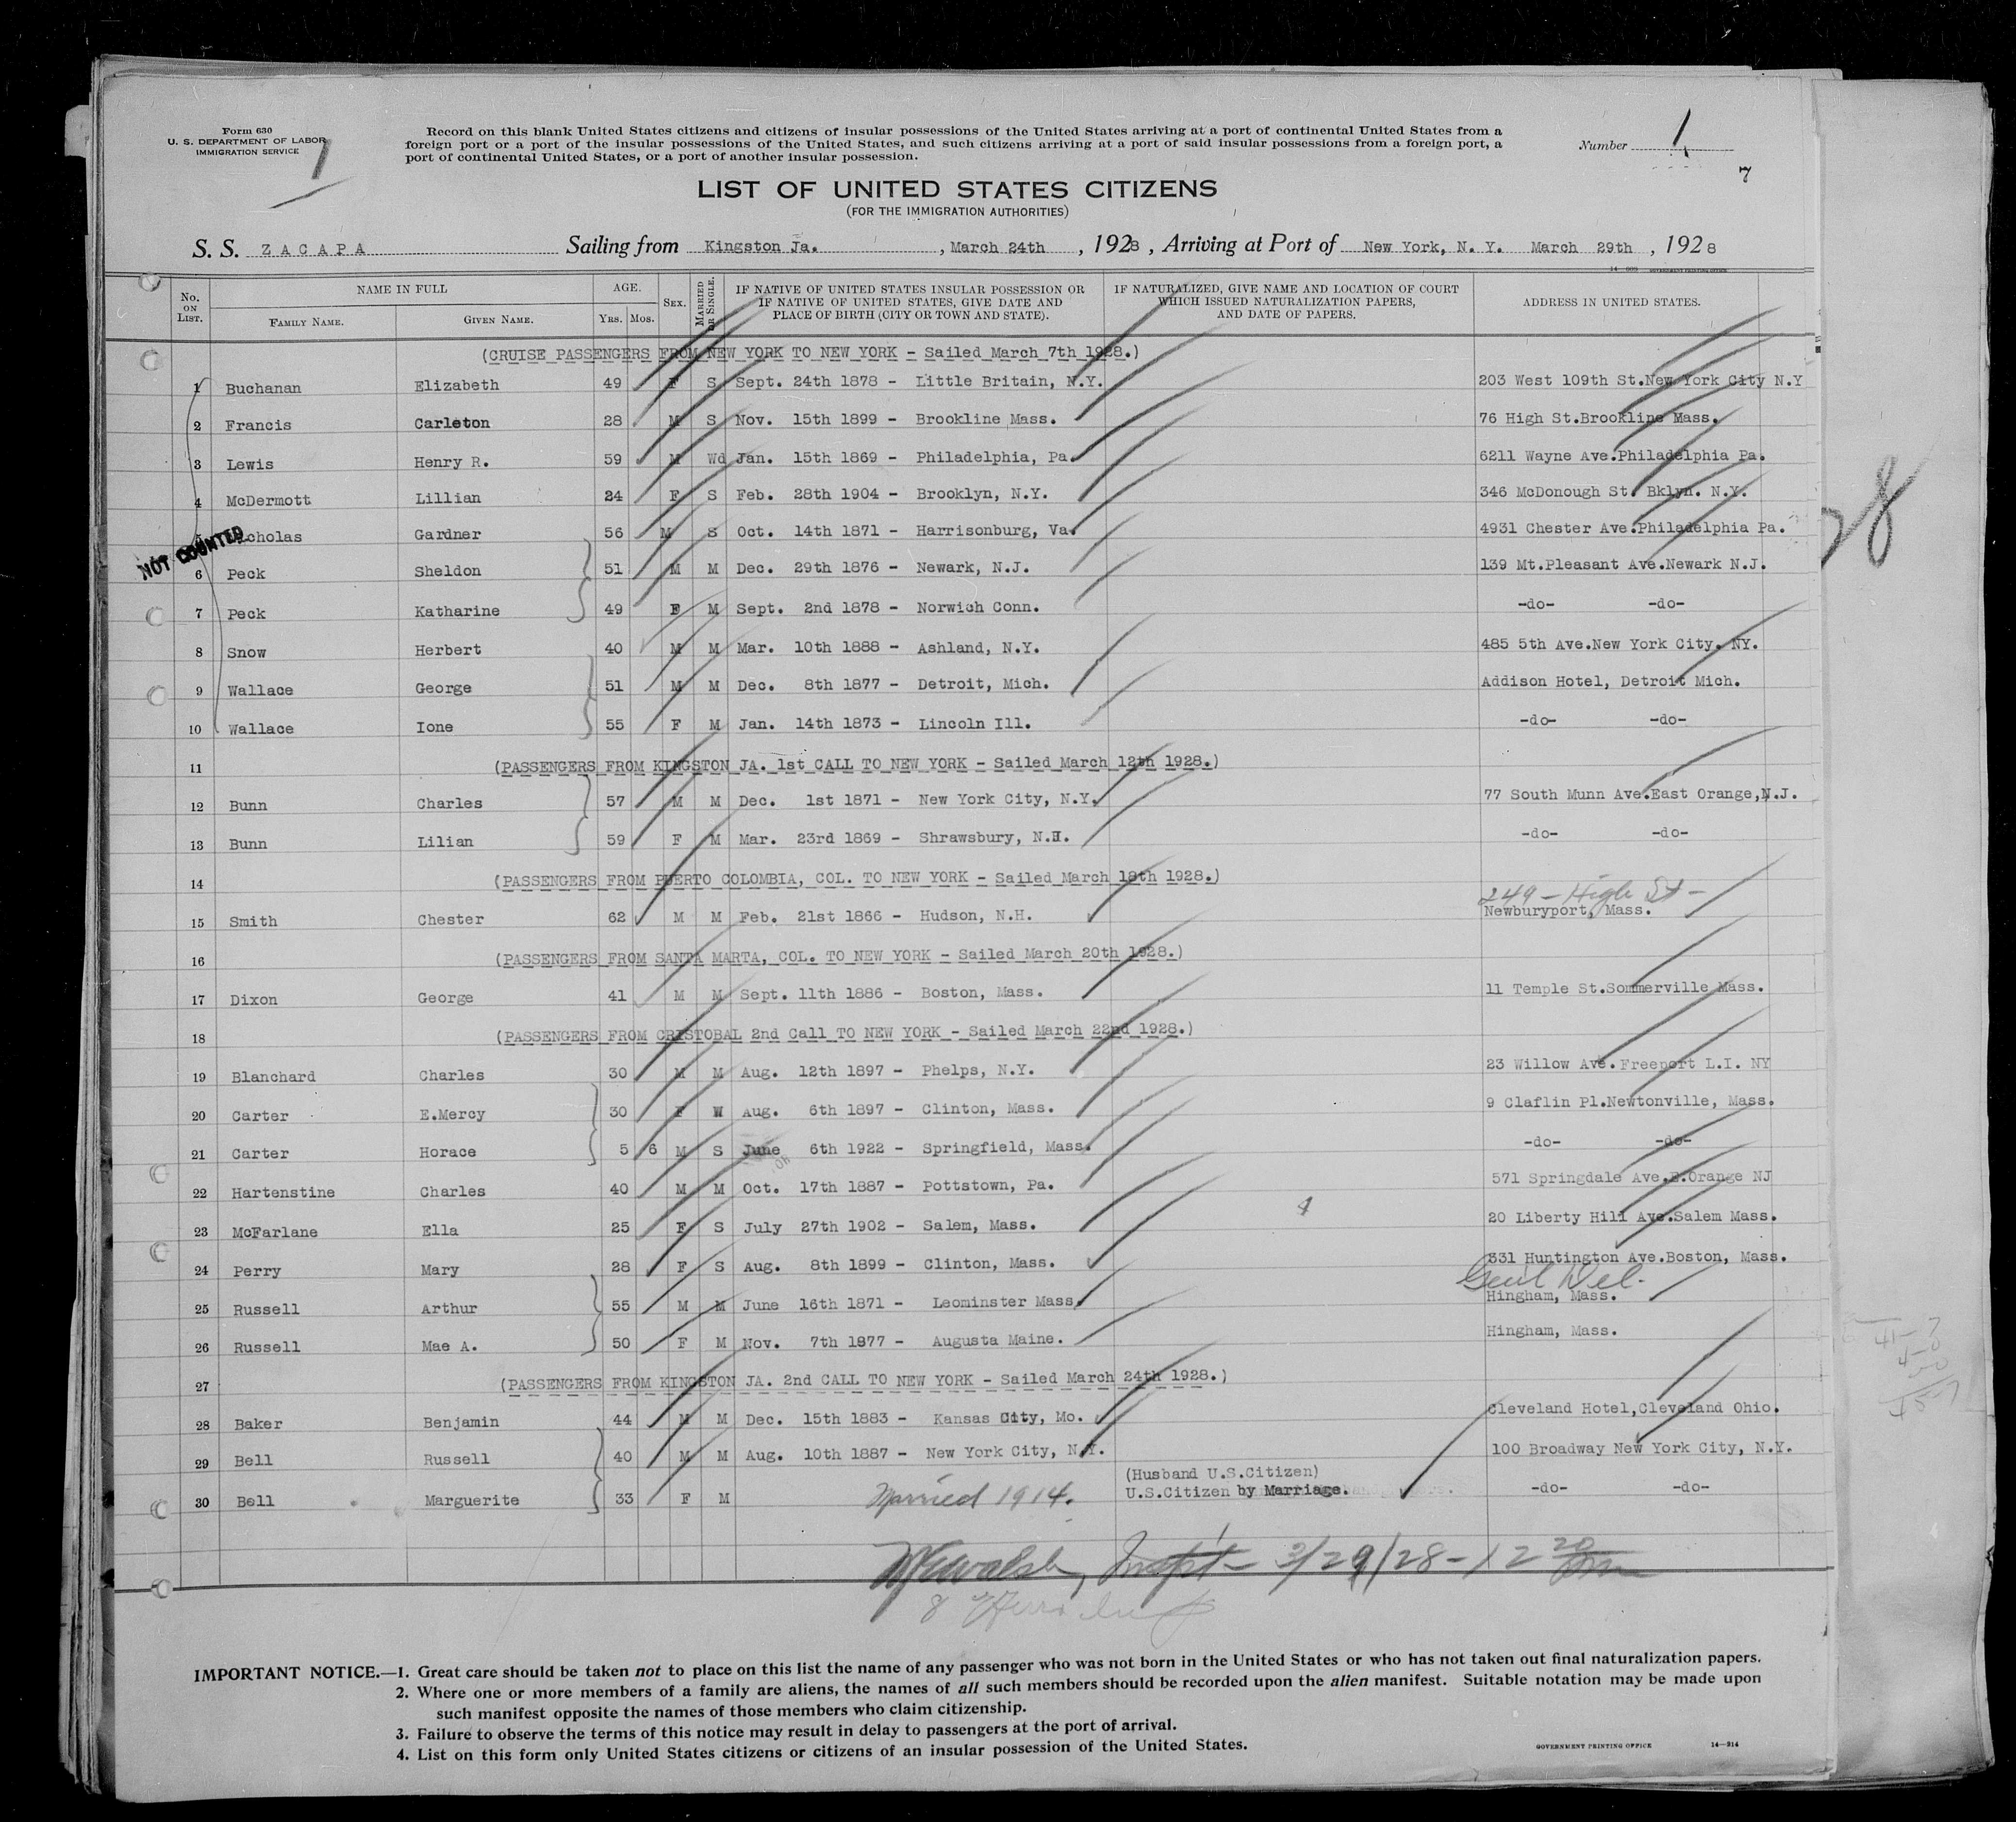 Form 630
U. S. DEPARTMENT OF LABOR
IMMIGRATION SERVICE
1
Record on this blank United States citizens and citizens of insular possessions of the United States arriving at a port of continental United States from a
foreign port or a port of the insular possessions of the United States, and such citizens arriving at a port of said insular possessions from a foreign port, a
port of continental United States, or a port of another insular possession.
Number 1
7
LIST OF UNITED STATES CITIZENS
(FOR THE IMMIGRATION AUTHORITIES)
S. S. ZACAPA Sailing from Kingston Ja. , March 24th , 1928 , Arriving at Port of New York, N. Y. March 29th , 1928
No. ON LIST. NAME IN FULL FAMILY NAME. GIVEN NAME. AGE. YRS. MOS. SEX. MARRIED OR SINGLE. IF NATIVE OF UNITED STATES INSULAR POSSESSION OR IF NATIVE OF UNITED STATES, GIVE DATE AND PLACE OF BIRTH (CITY OR TOWN AND STATE). IF NATURALIZED, GIVE NAME AND LOCATION OF COURT WHICH ISSUED NATURALIZATION PAPERS, AND DATE OF PAPERS. ADDRESS IN UNITED STATES.
(CRUISE PASSENGERS FROM NEW YORK TO NEW YORK - Sailed March 7th 1928.)
1 Buchanan Elizabeth 49 F S Sept. 24th 1878 - Little Britain, N.Y. 203 West 109th St.New York City N.Y
2 Francis Carleton 28 M S Nov. 15th 1899 - Brookline Mass. 76 High St.Brookline Mass.
3 Lewis Henry R. 59 M Wd Jan. 15th 1869 - Philadelphia, Pa. 6211 Wayne Ave.Philadelphia Pa.
4 McDermott Lillian 24 F S Feb. 28th 1904 - Brooklyn, N.Y. 346 McDonough St. Bklyn. N.Y.
NOT COUNTED
5 Nicholas Gardner 56 M S Oct. 14th 1871 - Harrisonburg, Va. 4931 Chester Ave.Philadelphia Pa.
6 Peck Sheldon 51 M M Dec. 29th 1876 - Newark, N.J. 139 Mt.Pleasant Ave.Newark N.J.
7 Peck Katharine 49 F M Sept. 2nd 1878 - Norwich Conn. -do- -do-
8 Snow Herbert 40 M M Mar. 10th 1888 - Ashland, N.Y. 485 5th Ave.New York City. NY.
9 Wallace George 51 M M Dec. 8th 1877 - Detroit, Mich. Addison Hotel, Detroit Mich.
10 Wallace Ione 55 F M Jan. 14th 1873 - Lincoln Ill. -do- -do-
11 (PASSENGERS FROM KINGSTON JA. 1st CALL TO NEW YORK - Sailed March 12th 1928.)
12 Bunn Charles 57 M M Dec. 1st 1871 - New York City, N.Y. 77 South Munn Ave.East Orange,N.J.
13 Bunn Lilian 59 F M Mar. 23rd 1869 - Shrawsbury, N.H. -do- -do-
14 (PASSENGERS FROM PUERTO COLOMBIA, COL. TO NEW YORK - Sailed March 18th 1928.)
249 - High St -
15 Smith Chester 62 M M Feb. 21st 1866 - Hudson, N.H. Newburyport, Mass.
16 (PASSENGERS FROM SANTA MARTA, COL. TO NEW YORK - Sailed March 20th 1928.)
17 Dixon George 41 M M Sept. 11th 1886 - Boston, Mass. 11 Temple St.Sommerville Mass.
18 (PASSENGERS FROM CRISTOBAL 2nd Call TO NEW YORK - Sailed March 22nd 1928.)
19 Blanchard Charles 30 M M Aug. 12th 1897 - Phelps, N.Y. 23 Willow Ave. Freeport L.I. NY
20 Carter E.Mercy 30 F W Aug. 6th 1897 - Clinton, Mass. 9 Claflin Pl.Newtonville, Mass.
21 Carter Horace 5 6 M S June 6th 1922 - Springfield, Mass. -do- -do-
22 Hartenstine Charles 40 M M Oct. 17th 1887 - Pottstown, Pa. 571 Springdale Ave.E.Orange NJ
23 McFarlane Ella 25 F S July 27th 1902 - Salem, Mass. 20 Liberty Hill Ave.Salem Mass.
24 Perry Mary 28 F S Aug. 8th 1899 - Clinton, Mass. 331 Huntington Ave.Boston, Mass.
Genl Del.
25 Russell Arthur 55 M M June 16th 1871 - Leominster Mass. Hingham, Mass.
26 Russell Mae A. 50 F M Nov. 7th 1877 - Augusta Maine. Hingham, Mass.
27 (PASSENGERS FROM KINGSTON JA. 2nd CALL TO NEW YORK - Sailed March 24th 1928.)
28 Baker Benjamin 44 M M Dec. 15th 1883 - Kansas City, Mo. Cleveland Hotel,Cleveland Ohio.
29 Bell Russell 40 M M Aug. 10th 1887 - New York City, N.Y. 100 Broadway New York City, N.Y.
(Husband U.S.Citizen)
30 Bell Marguerite 33 F M Married 1914. U.S.Citizen by Marriage. -do- -do-
Walsh, Inspt - 3/29/28 - 12 20 pm
IMPORTANT NOTICE.—1. Great care should be taken not to place on this list the name of any passenger who was not born in the United States or who has not taken out final naturalization papers.
2. Where one or more members of a family are aliens, the names of all such members should be recorded upon the alien manifest. Suitable notation may be made upon
such manifest opposite the names of those members who claim citizenship.
3. Failure to observe the terms of this notice may result in delay to passengers at the port of arrival.
4. List on this form only United States citizens or citizens of an insular possession of the United States.
GOVERNMENT PRINTING OFFICE 14—914
28